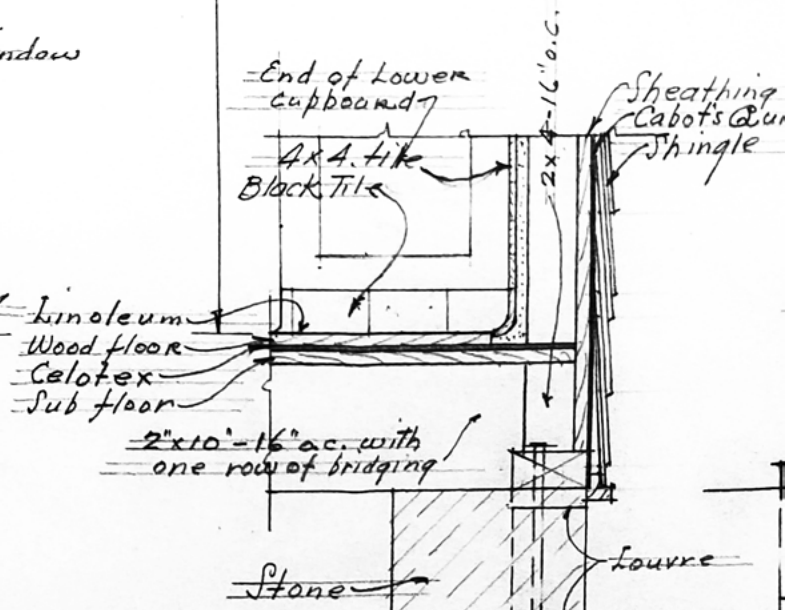 End of Lower
cupboard
4x4 tile
Black Tile
2x4-16"o.c.
Sheathing
Cabot's
Shingle
Linoleum
Wood floor
Celotex
Sub floor
2"x10"-16"o.c. with
one row of bridging
Stone
Louvre